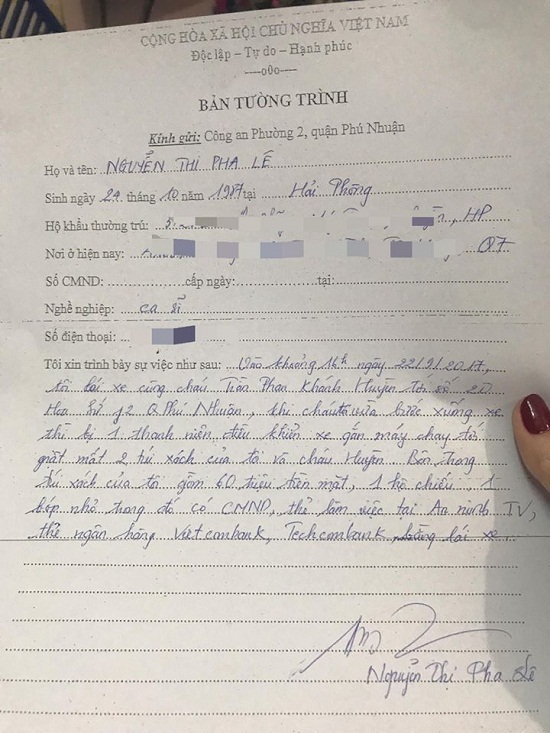 CỘNG HÒA XÃ HỘI CHỦ NGHĨA VIỆT NAM
Độc lập – Tự do – Hạnh phúc
-----o0o-----
BẢN TƯỜNG TRÌNH
Kính gửi: Công an Phường 2, quận Phú Nhuận
Họ và tên: NGUYỄN THỊ PHA LÊ
Sinh ngày 24 tháng 10 năm 1987 tại Hải Phòng
Hộ khẩu thường trú: HP
Nơi ở hiện nay: Q7
Số CMND: cấp ngày: tại:
Nghề nghiệp: ca sĩ
Số điện thoại:
Tôi xin trình bày sự việc như sau: Vào khoảng 16h ngày 22/9/2017,
tôi lái xe cùng cháu Trần Phan Khánh Huyền tới số 20
Hoa Sứ f2 Q Phú Nhuận, khi cháu vừa bước xuống xe
thì bị 1 thanh niên điều khiển xe gắn máy chạy tới
giật mất 2 túi xách của tôi và cháu Huyền. Bên trong
túi xách của tôi gồm 60 triệu tiền mặt, 1 hộ chiếu, 1
bóp nhỏ trong đó có CMND, thẻ làm việc tại An ninh TV,
thẻ ngân hàng Vietcombank, Techcombank, bằng lái xe.
Nguyễn Thị Pha Lê